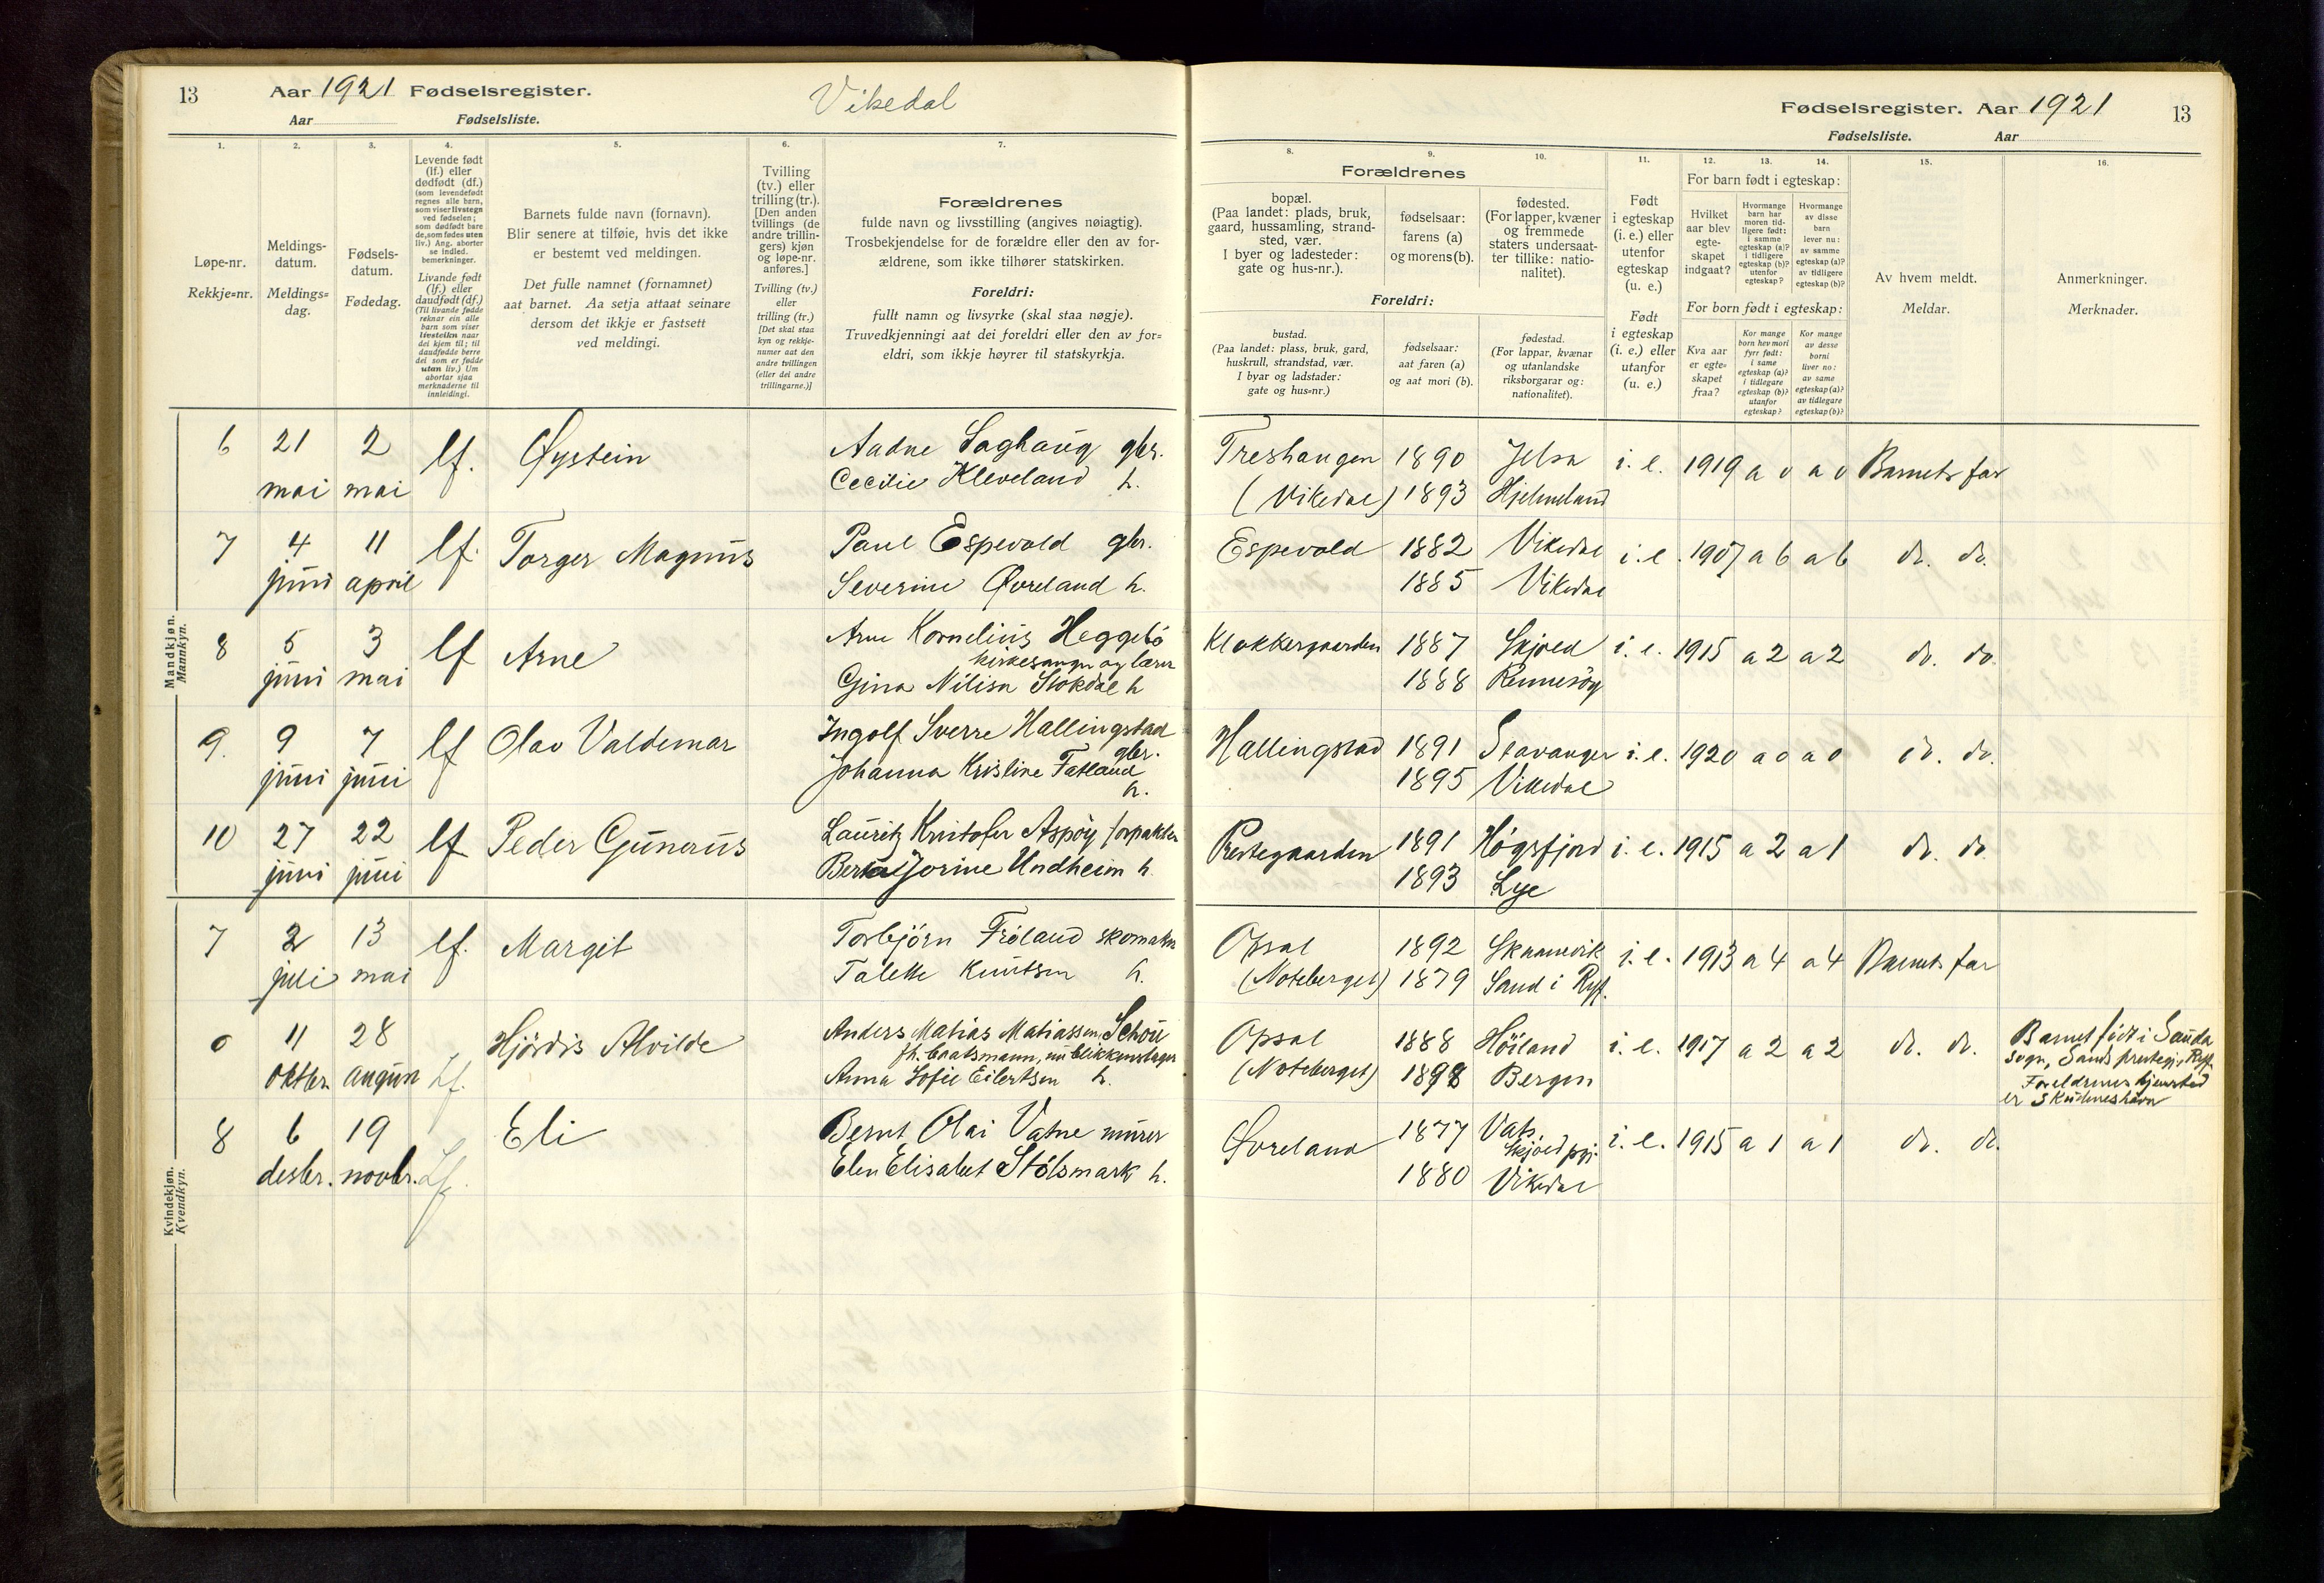 13 Aar 1921 Fødselsregister. Vikedal
Aar Fødselsliste.
1. 2. 3. 4. 5. 6. 7.
Løpe-nr.
Rekkje=nr.
Meldings-
datum.
Meldings=
dag.
Fødsels-
datum.
Fødedag.
Levende født
(lf.) eller
dødfødt (df.)
(som levendefødt
regnes alle barn,
som viser livstegn
ved fødselen;
som dødfødt bare
de, som fødes uten
liv.) Ang. aborter
se indled.
bemerkninger.
Livande født
(lf.) eller
daudfødt (df.)
(Til livande fødde
reknar ein alle
barn som viser
livsteikn naar
dei kjem til; til
daudfødde berre
dei som er fødde
utan liv.) Um
abortar sjaa
merknaderne til
innleidingi.
Barnets fulde navn (fornavn).
Blir senere at tilføie, hvis det ikke
er bestemt ved meldingen.
Det fulle namnet (fornamnet)
aat barnet. Aa setja attaat seinare
dersom det ikkje er fastsett
ved meldingi.
Tvilling
(tv.) eller
trilling (tr.).
[Den anden
tvillings (de
andre trillin-
gers) kjøn
og løpe-nr.
anføres.]
Tvilling (tv.)
eller
trilling (tr.)
[Det skal staa
kyn og rekkje-
numer aat den
andre tvillingen
(eller dei andre
trillingarne.)]
Forældrenes
fulde navn og livsstilling (angives nøiagtig).
Trosbekjendelse for de forældre eller den av for-
ældrene, som ikke tilhører statskirken.
Foreldri:
fullt namn og livsyrke (skal staa nøgje).
Truvedkjenningi aat dei foreldri eller den av for=
eldri, som ikkje høyrer til statskyrkja.
Mandkjøn.
Mannkyn.
6 21 mai 2 mai lf. Øystein
Aadne Laghaug gbr.
Cecilie Kleveland h.
7 4 juni 11 april lf. Torger Magnus
Paul Espevold gbr.
Severine Øvreland h.
8 5 juni 3 mai lf Arne
Arne Kornelius Heggebö
kirkesanger og lærer
Gina Nilisa Stokdal h
9. 9 juni 7 juni lf Olav Valdemar
Ingolf Sverre Hallingstad
gbr.
Johanna Kristine Fatland
h.
10 27 juni 22 juni lf Peder Gunerius
Lauritz Kristofer Aspöy forpakter
Berta Jorine Undheim h.
Kvindekjøn.
Kvendkyn.
7 2 juli 13 mai lf. Margit
Torbjörn Fröland skomaker
Talette Knutsen h.
0 11 oktbr. 28 august Lf. Hjördis Alvilde
Anders Matias Matiassen Schou
fh. baatsmann, nu blikkenslager
Anna Sofie Eilertsen h.
8 6 desbr. 19 novbr. Lf. Eli
Bernt Olai Vatne murer
Elen Elisabet Stölsmark h.
Fødselsregister. Aar 1921 13
Fødselsliste. Aar
8. 9. 10. 11. 12. 13. 14. 15. 16.
Forældrenes
bopæl.
(Paa landet: plads, bruk,
gaard, hussamling, strand-
sted, vær.
I byer og ladesteder:
gate og hus-nr.).
fødselsaar:
farens (a)
og morens (b).
fødested.
(For lapper, kvæner
og fremmede
staters undersaat-
ter tillike: natio-
nalitet).
Foreldri:
bustad.
(Paa landet: plass, bruk, gard,
huskrull, strandstad, vær.
I byar og ladstader:
gate og hus=nr.)
fødselsaar:
aat faren (a)
og aat mori (b).
fødestad.
(For lappar, kvænar
og utanlandske
riksborgarar og:
nationalitet).
Født
i egteskap
(i. e.) eller
utenfor
egteskap
(u. e.)
Født
i egteskap
(i. e.) eller
utanfor
(u. e.)
For barn født i egteskap:
Hvilket
aar blev
egte-
skapet
indgaat?
Hvormange
barn har
moren tid-
ligere født:
i samme
egteskap (a)?
i tidligere
egteskap (b)?
utenfor
egteskap?
Hvormange
av disse
barn
lever nu:
av samme
egteskap (a)?
av tidligere
egteskap (b)?
For born født i egteskap:
Kva aar
er egte=
skapet
fraa?
Kor mange
born hev mori
fyrr født:
i same
egteskap (a)?
i tidlegare
egteskap (b)?
utanfor
egteskap?
Kor mange
av desse
borni
liver no:
av same
egteskap (a)?
av tidlegare
egteskap (b)?
Av hvem meldt.
Meldar.
Anmerkninger.
Merknader.
Treshaugen 1890 Jelsa i. e. 1919 a 0 a 0 Barnets far
(Vikedal) 1893 Hjelmeland
Espevold 1882 Vikedal i. e. 1907 a 6 a 6 do. do.
1885 Vikedal
Klokkergaarden 1887 Skjold i. e. 1915 a 2 a 2 do. do.
1888 Rennesöy
Hallingstad 1891 Stavanger i. e. 1920 a 0 a 0 do. do.
1895 Vikedal
Prestegaarden 1891 Högsfjord i. e. 1915 a 2 a 1 do. do.
1893 Lye
Opsal 1892 Skaanevik i. e. 1913 a 4 a 4 Barnets far
(Noteberget) 1879 Sand i Ryf.
Opsal 1888 Höiland i. e. 1917 a 2 a 2 do. do.
(Noteberget) 1898 Bergen
Barnet födt i Sauda
sogn, Sands prestegj. Ryf.
Foreldrenes hjemsted
er Skudeneshavn
Øvreland 1877 Vats, i. e. 1915 a 1 a 1 do. do.
Skjold pgj.
1880 Vikedal